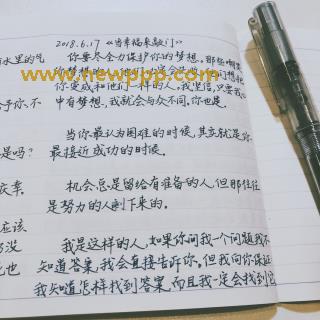 2018.6.17 《当幸福来敲门》
水里的气
你要尽全力保护你的梦想。那些嘲笑
你和他们一样的人。我坚信,只要我心
予你,不
中有梦想,我就会与众不同,你也是。
当你最认为困难的时候,其实就是你
是吗?
最接近成功的时候。
机会总是留给有准备的人,但那往往
是努力的人剩下来的。
应该
我是这样的人,如果你问我一个问题我不
知道答案,我会直接告诉你,但我向你保证
也
我知道怎样找到答案,而且我一定会找到它
www.newppp.com